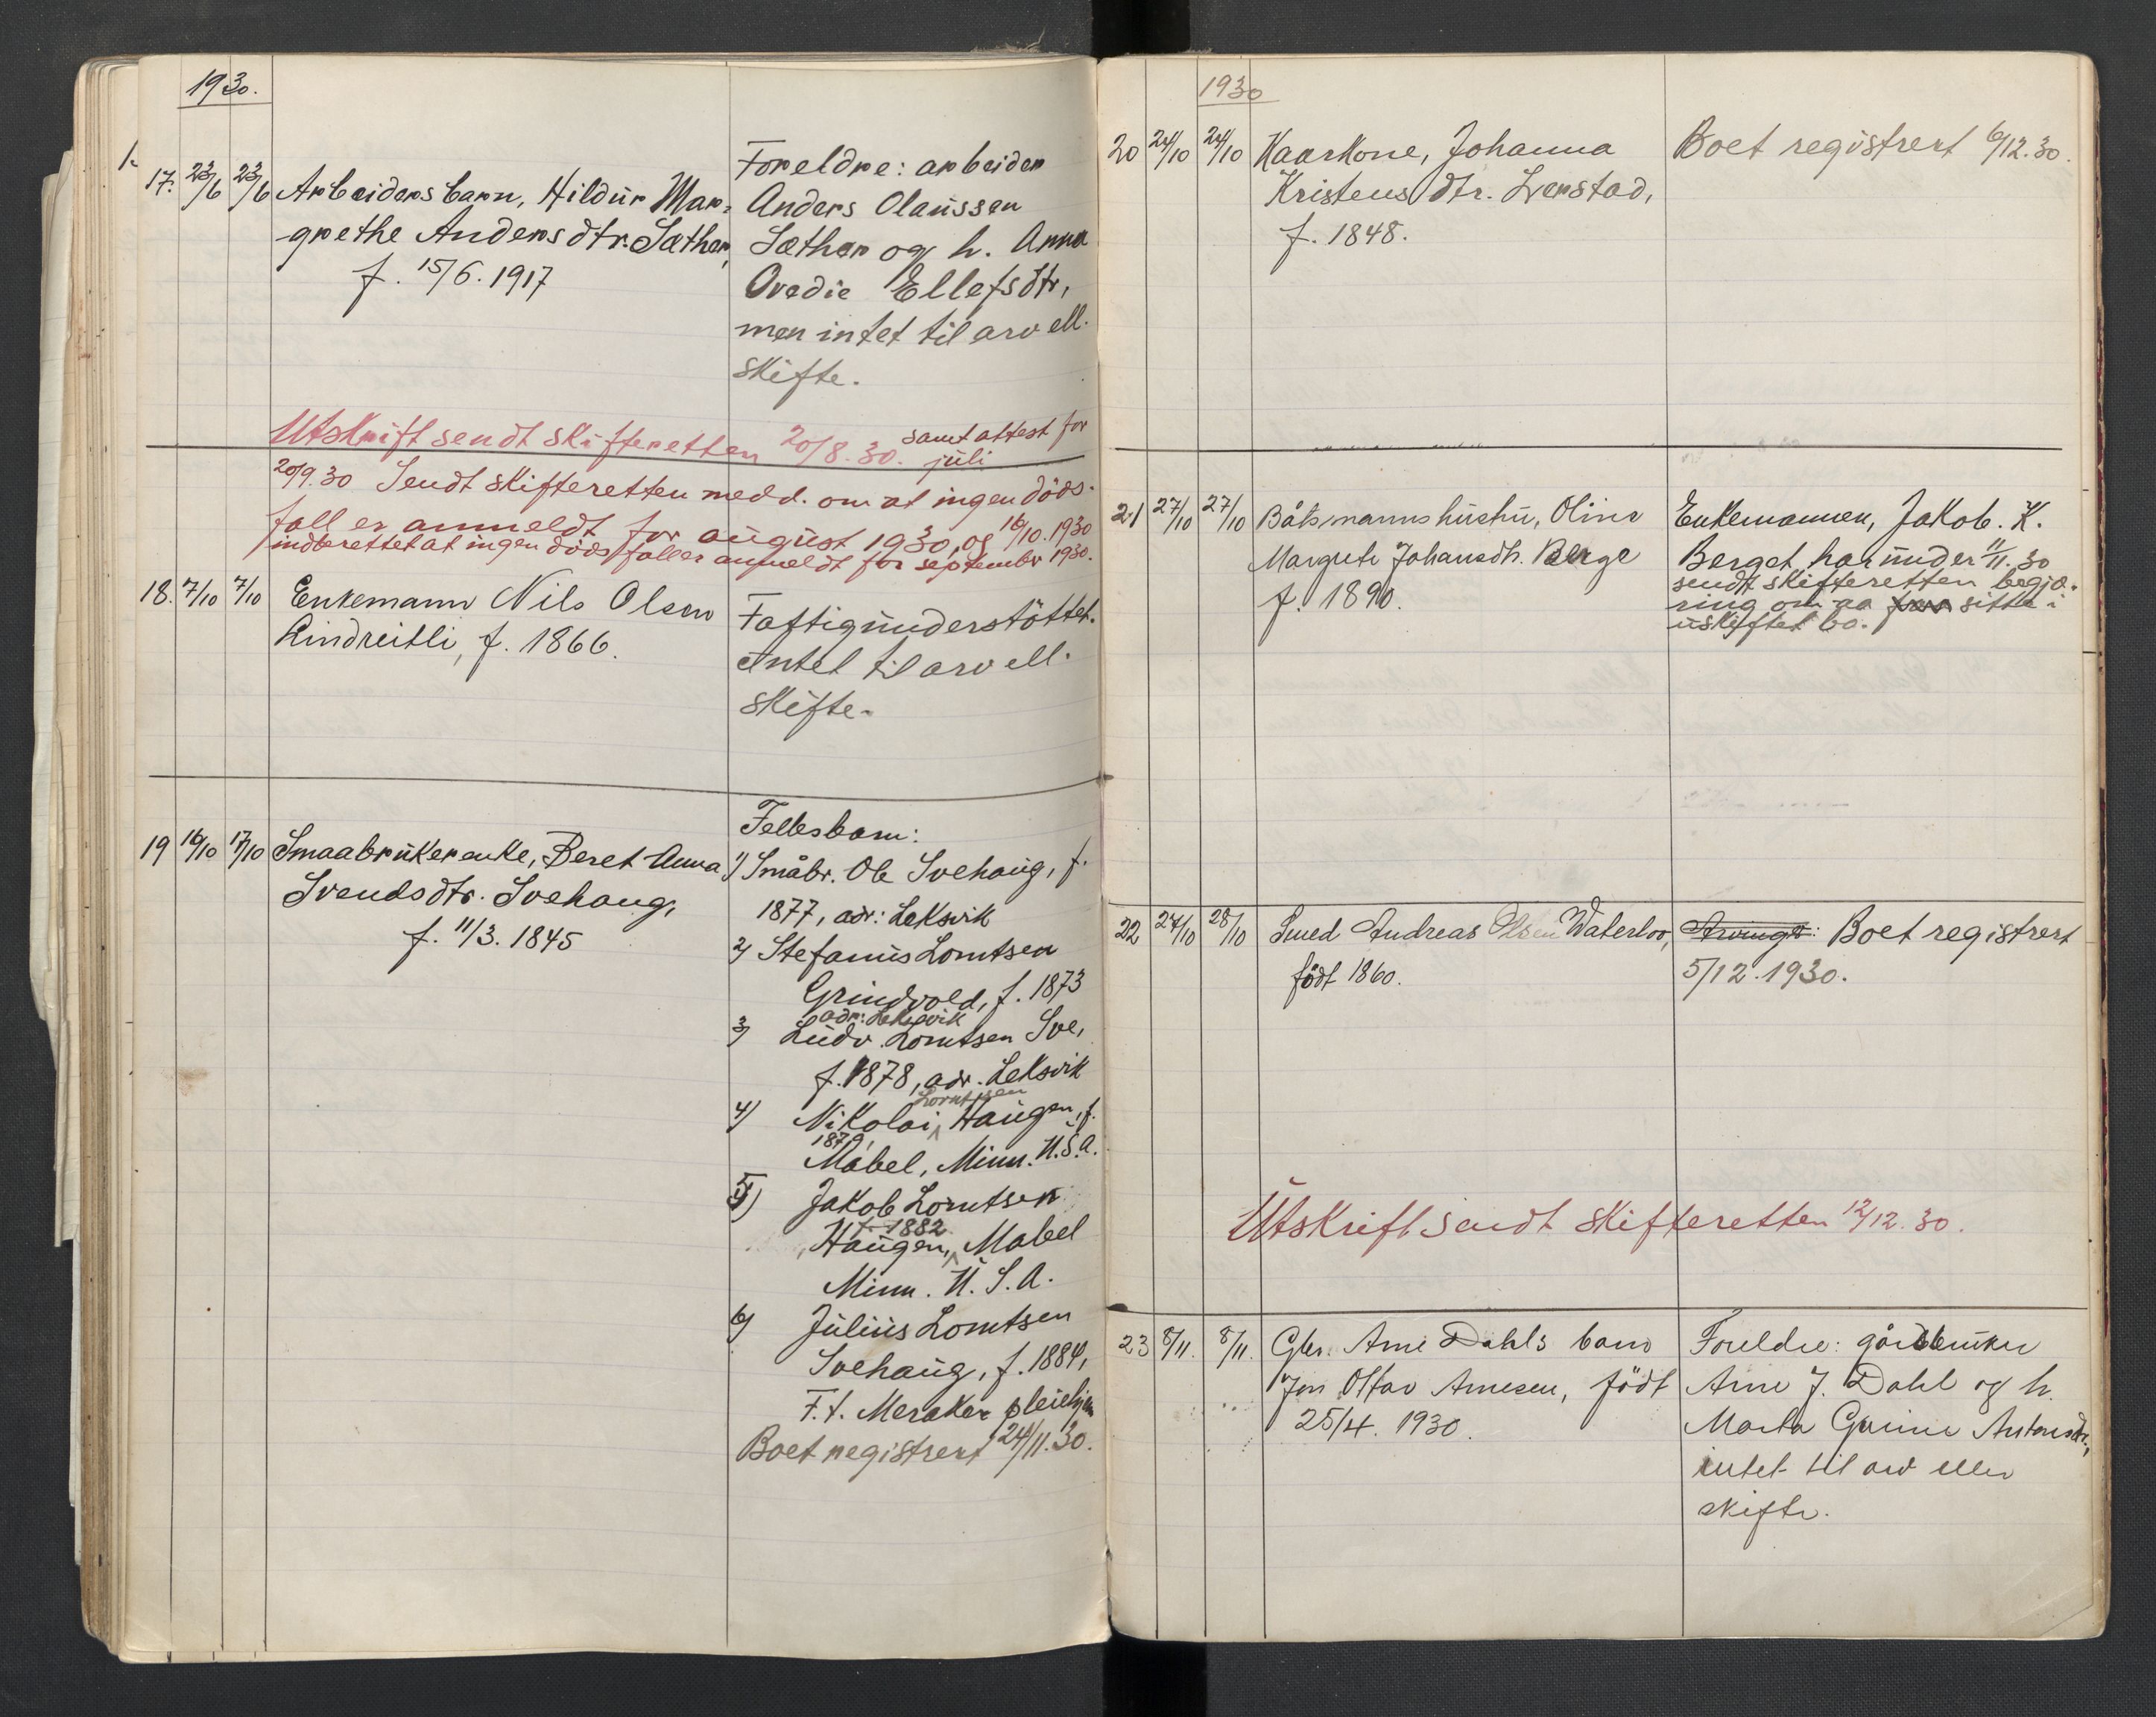 1930.
17. 23/6 23/6 Arbeidersbarn, Hildur Mar-
grethe Andersdtr. Sæther,
f. 15/6. 1917
Foreldre: arbeider
Anders Olaussen
Sæther og h. Anna
Ovedie Ellefsdtr,
men intet til arv ell.
skifte.
Utskrift sendt skifteretten 20/8. 30. samt attest for
juli
20/9. 30 Sendt skifteretten medd. om at ingen döds-
fall er anmeldt for august 1930, og 16/10. 1930
indberettet at ingen dödsfall er anmeldt for september 1930.
18. 7/10 7/10 Enkemann Nils Olsen
Lindreitli, f. 1866.
Fattigunderstöttet.
Intet til arv ell.
skifte.
19 16/10 17/10 Smaabrukerenke, Beret Anna
Svendsdtr. Svehaug,
f. 11/3. 1845
Fellesbarn:
1) Småbr. Ole Svehaug, f.
1877, adr: Leksvik
2) Stefanus Lorntsen
Grindvold, f. 1873
adr: Leksvik
3) Ludv. Lorntsen Sve,
f. 1878, adr. Leksvik
Lorntsen
4) Nikolai Haugen, f.
1879,
Mabel, Minn. U.S.A.
5) Jakob Lorntsen
f. 1882
Haugen, Mabel
Minn. U.S.A.
6) Julius Lorntsen
Svehaug, f. 1884,
F.t. Meraker pleiehjem
Boet registrert 24/11. 30.
1930
20 24/10 24/10 Kaarkone, Johanna
Kristensdtr. Lerstad,
f. 1848.
Boet registrert 6/12. 30.
21 27/10 27/10 Båtsmannshustru, Oline
Margrete Johansdtr. Berge
f. 1890.
Enkemannen, Jakob. K.
Berget har under 11/11. 30
sendt skifteretten begjæ-
ring om aa faa sitte i
uskiftet bo.
22 27/10 28/10 Smed Andreas Olsen Waterloo,
födt 1860.
Arvinger: Boet registrert
5/12. 1930.
Utskrift sendt skifteretten 12/12. 30.
23 8/11. 8/11. Gbr. Arne Dahls barn
Jon Ottar Arnesen, födt
25/4. 1930.
Foreldre: gårdbruker
Arne J. Dahl og h.
Marta Gurine Antonsdtr,
intet til arv eller
skifte.